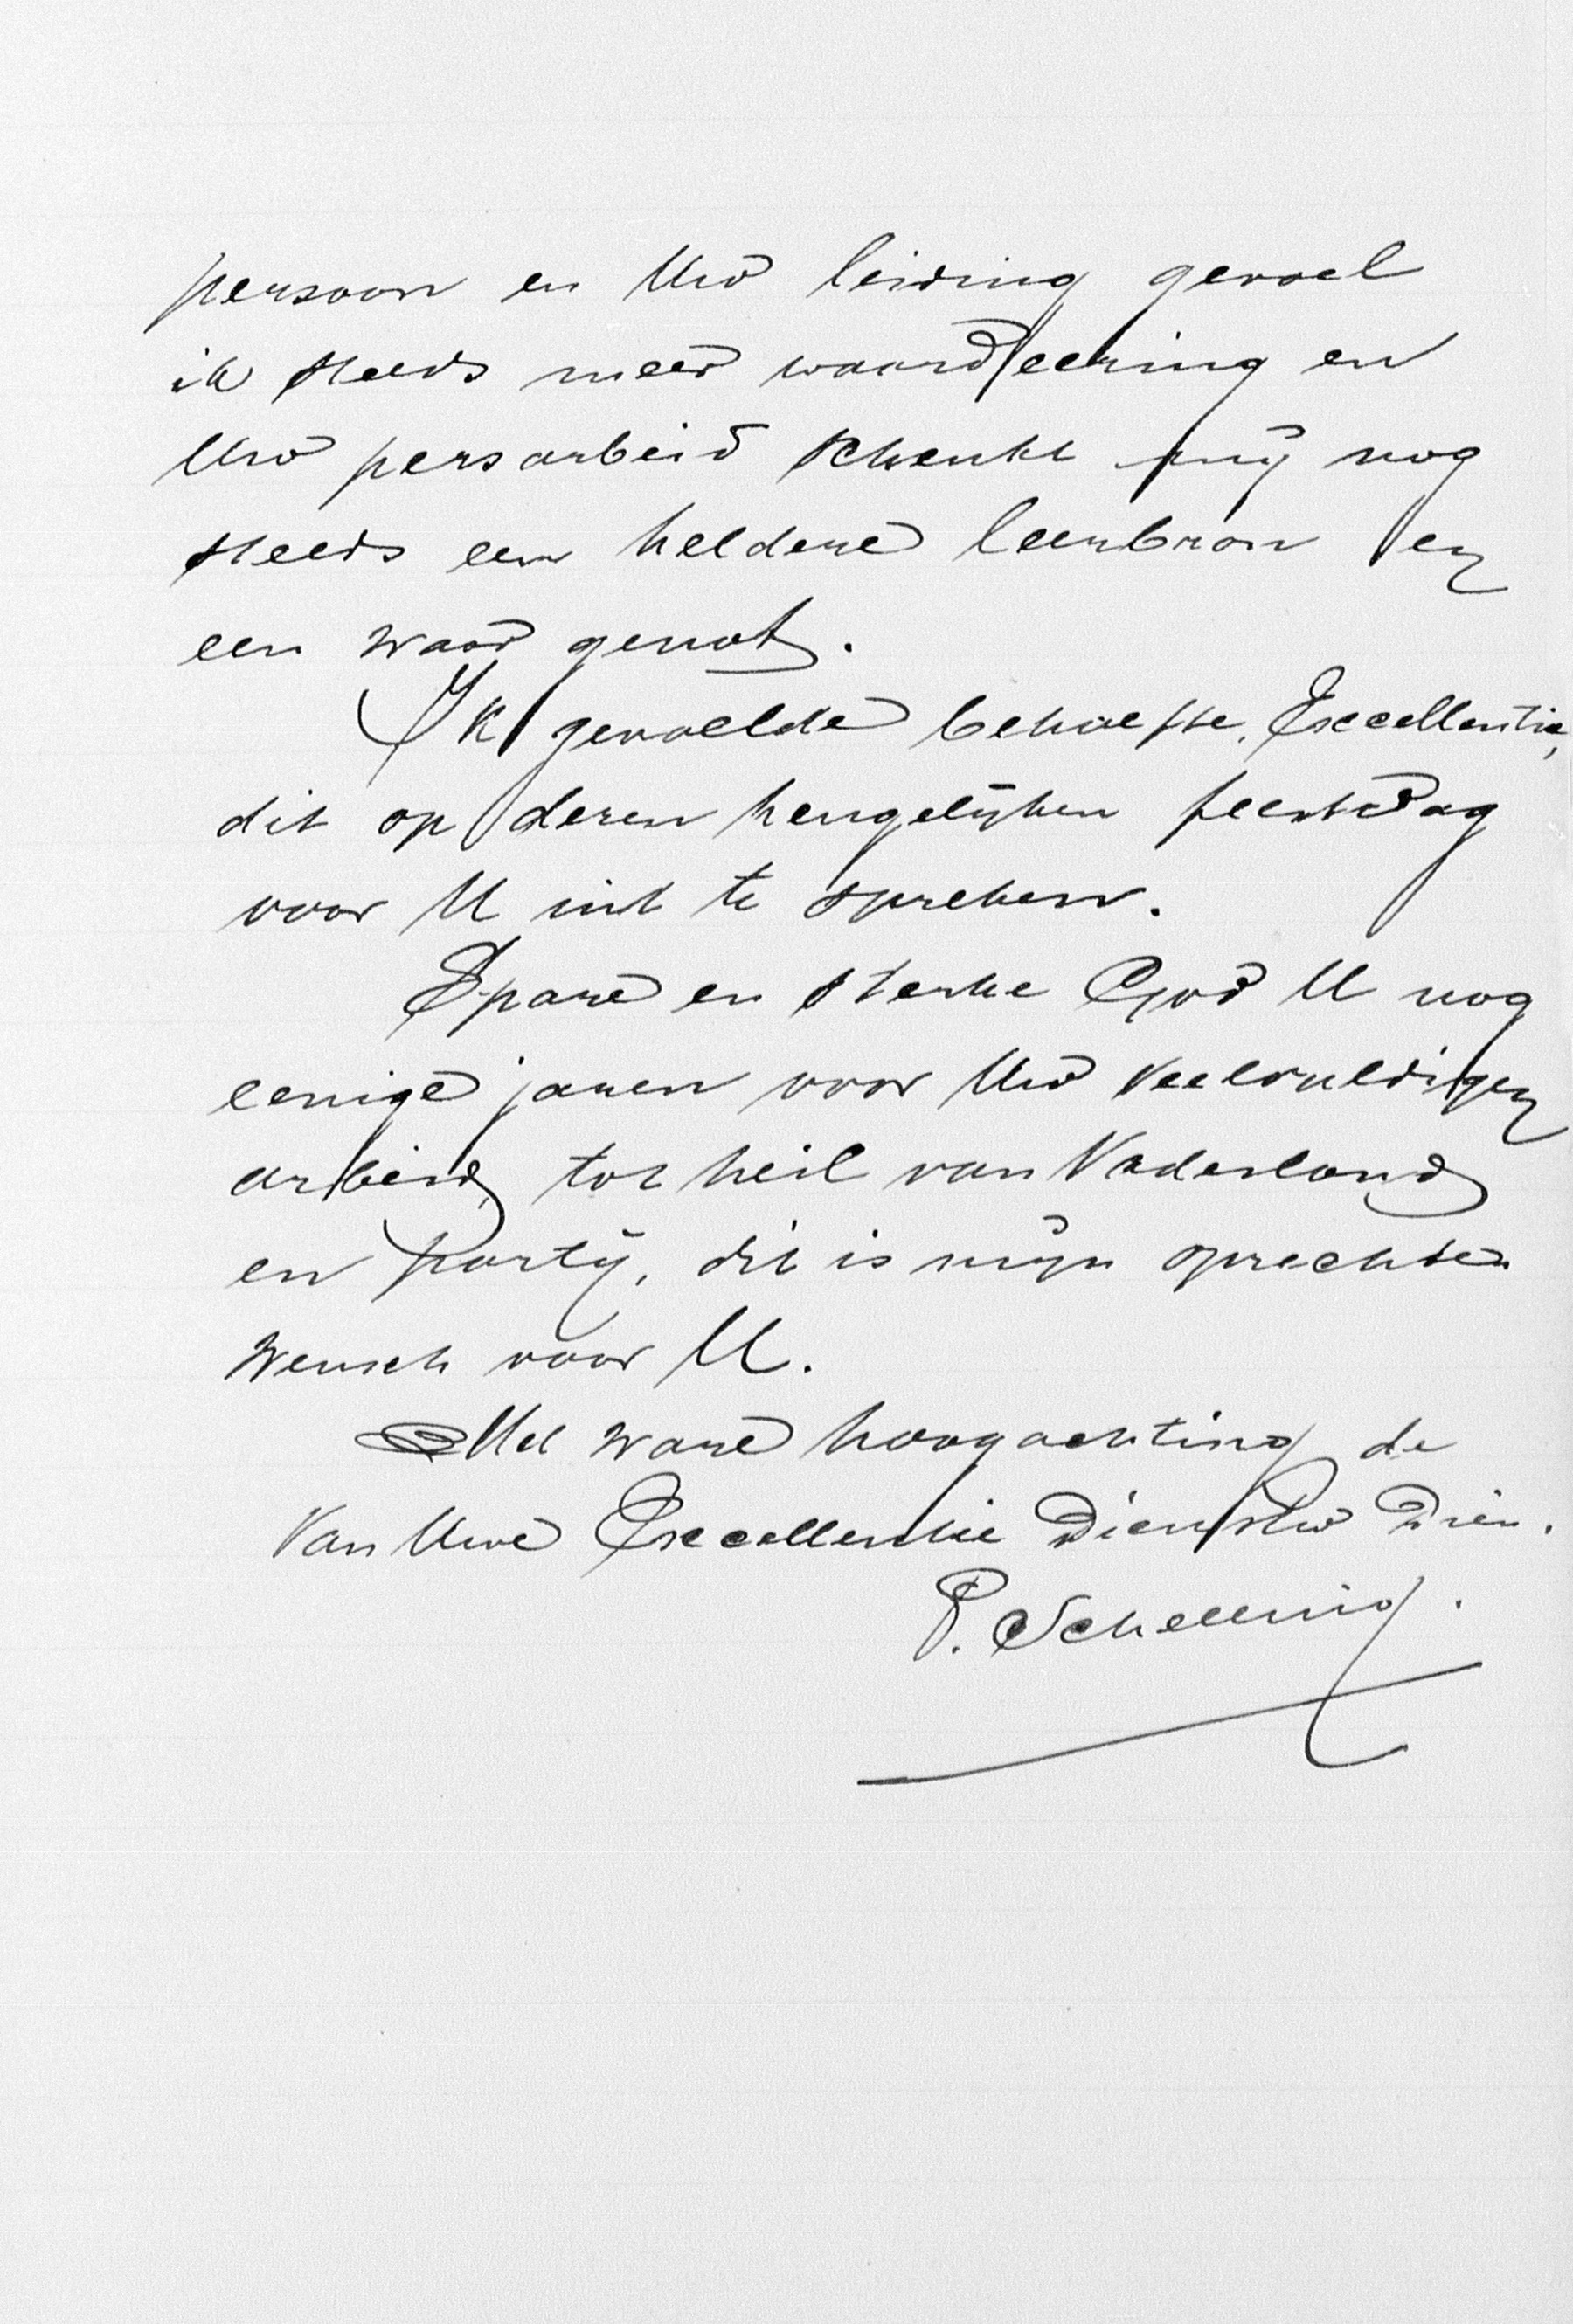 persoon en Uw leiding gevoel
ik steeds meer waardeering en
Uw persarbeid schenkt mij nog
steeds een heldere leerbron en
een waar genot.
Ik gevoelde behoefte, Excellentie,
dit op dezen heugelijken feestdag
voor U uit te spreken.
Spare en sterke God U nog
eenige jaren voor Uw veelvuldigen
arbeid, tot heil van Vaderland
en Partij, dit is mijn oprechten
wensch voor U.
Met ware hoogachting de
Van Uwe Excellentie Dienstw Dien.
P. Schelling.